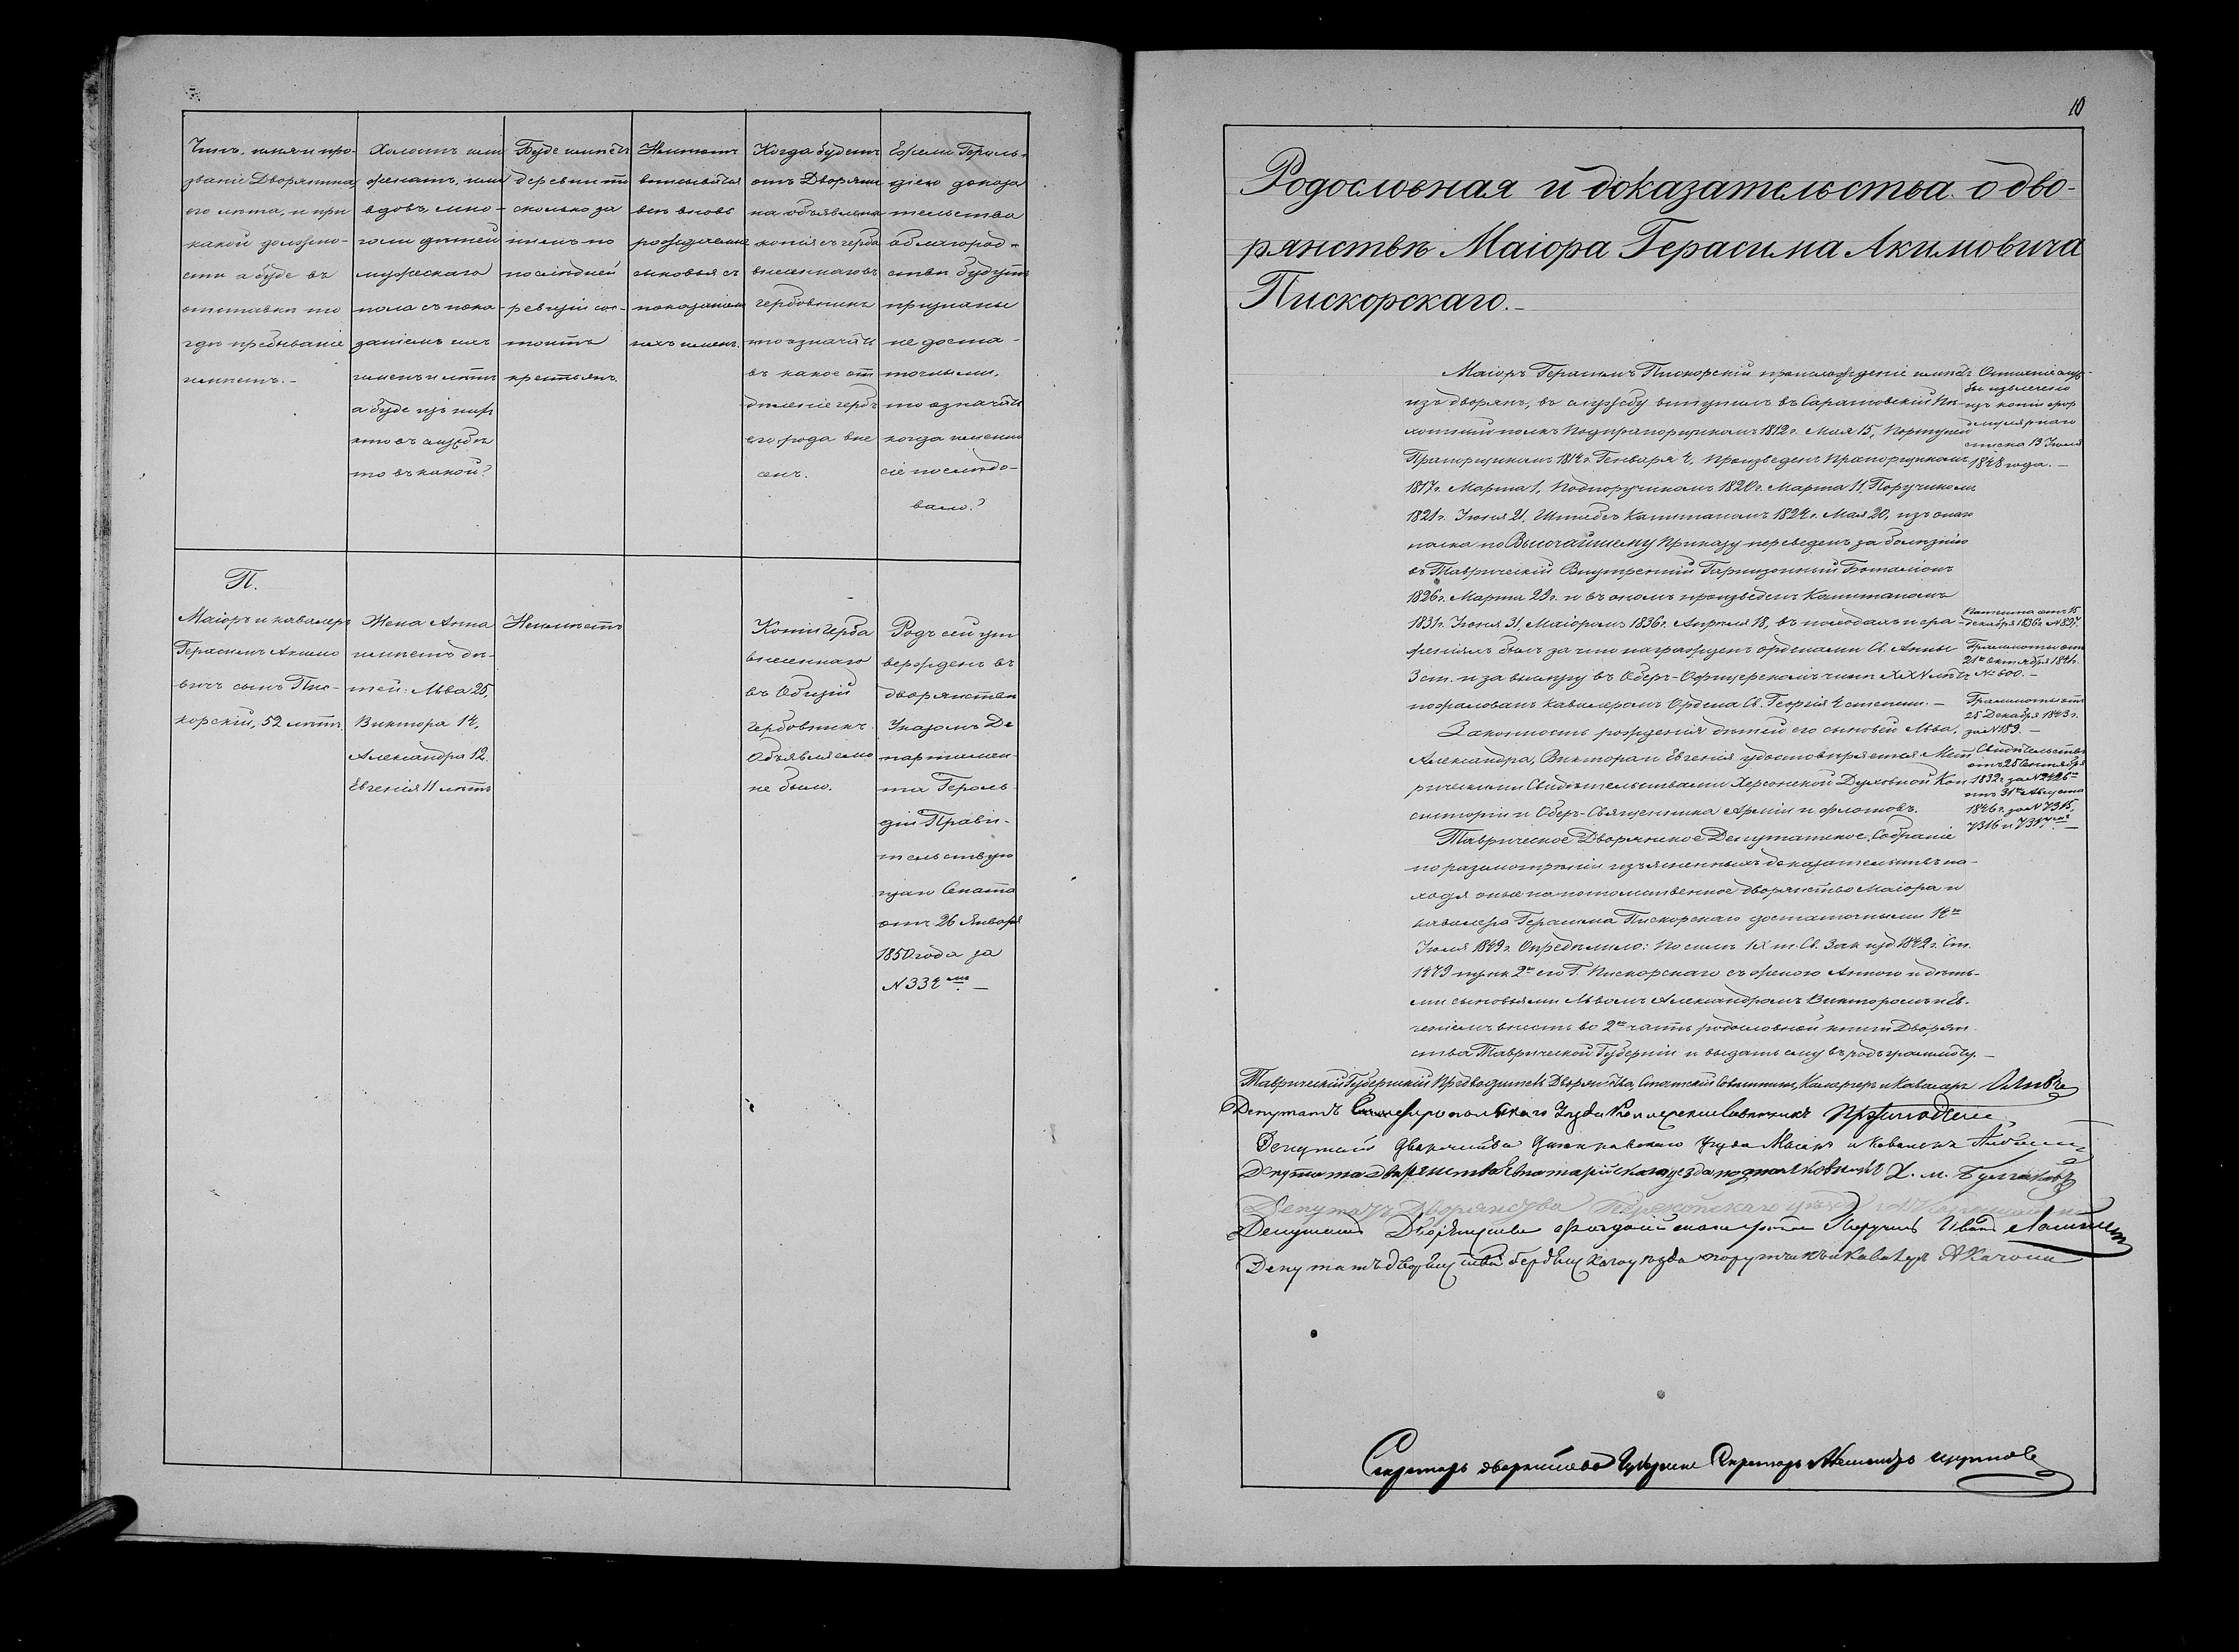 Чинъ, имя и про-
званіе Дворянина,
его лѣта, и при
какой должно-
сти а буде въ
отставкѣ то
гдѣ пребываніе
имѣетъ.-
Холостъ или
женатъ, или
вдовъ, мно-
голи дѣтей
мужескаго
пола съ пока
заніемъ ихъ
именъ и лѣтъ
а буде изъ нихъ
кто въ службѣ
то въ какой?
Буде имѣетъ
деревни то
сколько за
нимъ по
послѣдней
ревизіи сос-
тоитъ
крестьянъ.
вписывать
вновь
сыновья съ
показаніемъ
ихъ именъ.
Когда будетъ
отъ Дворяни
на объявлена
копія съ герба
внесеннаго въ
гербовникъ
то означать
въ какое от
дѣленіе гербъ
его рода вне
сенъ.
Ежели Героль-
діею доказа
тельства
о благород-
ствѣ будутъ
признаны
не доста-
точными,
то означать
когда именно
сіе послѣдо-
вало?
П.
Маіоръ и кавалеръ
Герасимъ Акимо
вичъ сынъ Пис-
корскій, 52 лѣтъ.
Жена Анна
имѣетъ дѣ-
тей: Льва 25,
Виктора 14,
Александра 12.
Евгенія 11 лѣтъ
Неимѣетъ
Копіи герба
внесеннаго
въ Общій
гербовникъ
объявляемо
не было.
Родъ сей ут
вержденъ въ
дворянствѣ
Указомъ Де
партамен-
та Героль-
діи Прави-
тельствую
щаго Сената
отъ 26 Января
1850 года за
N 334 мъ. —
10
Родословная и доказательства о дво-
рянствѣ Маіора Герасима Акимовича
Пискорскаго.-
Маіоръ Герасимъ Пискорскій происхожденіе имѣетъ
изъ дворянъ, въ службу вступилъ въ Саратовскій Пѣ-
хотный полкъ Подпрапорщикомъ 1812 г. Мая 15, Портупей
Прапорщикомъ 1814 г. Генваря 4, произведенъ Прапорщикомъ
1817 г. Марта 1, Подпоручикомъ 1820 г. Марта 11, Поручикомъ
1821 г. Іюня 21, Штабсъ Капитаномъ 1824 г. Мая 20, изъ онаго
полка по Высочайшему Приказу переведенъ за болѣзнію
въ Таврическій Внутренній Гарнизонный Баталіонъ
1826 г. Марта 29 г. и въ ономъ произведенъ Капитаномъ
1831 г. Іюня 31, Маіоромъ 1836 г. Апрѣля 18, въ походахъ и сра
женіяхъ былъ за что награжденъ орденами Св. Анны
3 ст. и за выслугу въ Оберъ-Офицерскомъ чинѣ XXV лѣтъ
пожалованъ кавалеромъ Ордена Св. Георгія 4 степени. —
Законность рожденія дѣтей его сыновей Льва,
Александра, Виктора и Евгенія удостовѣряется Мет
рическими Свидѣтельствами Херсонской Духовной Кон
систоріи и Оберъ-Священника Арміи и флотовъ.
Таврическое Дворянское Депутатское Собраніе
по разсмотрѣніи изъясненныхъ доказательствъ на-
ходя оные на потомственное дворянство Маіора и
кавалера Герасима Пискорскаго достаточными 14го
Іюля 1849 г. Опредѣлило: По силѣ IX т. Св. Зак изд. 1842 г. Ст.
1479 пункт 2й его Г. Пискорскаго съ женою Анною и дѣть-
ми сыновьями Львомъ Александромъ Викторомъ и Ев-
геніемъ внести во 2ю часть родословной книги Дворян
ства Таврической Губерніи и выдать ему въ родъ грамоту. —
Описаніе служ-
бы извлечено
изъ копіи фор
мулярнаго
списка 13 Іюля
1848 года. —
Патента отъ 15
декабря 1836 г. N 897.
Грамоты отъ
21го октября 1821 г.
N 600. —
Грамоты отъ
25 Декабря 1843 г.
за N 189. —
Свидѣтельства
отъ 25 Сентября
1832 г. за N 2426
отъ 31го Августа
1846 г. за N 7315,
7316 и 7317. —
Таврическій Губернскій Предводитель Дворянства, Статскій Совѣтникъ, Камергеръ и Кавалеръ
Депутатъ Симферопольскаго Уѣзда Коллежскій Совѣтникъ
Депутатъ Дворянства Днѣпровскаго Уѣзда Маіоръ и Кавалеръ
Депутатъ дворянства Евпаторійскаго уѣзда подполковникъ Х. м. Булгаковъ
Депутатъ Дворянства Перекопскаго уѣзда
Депутатъ Дворянства Феодосійскаго уѣзда Поручикъ Иванъ
Депутатъ дворянства бердянскаго уѣзда поручикъ и Кавалеръ А Качони
Секретарь дворянства Губернскій Секретарь